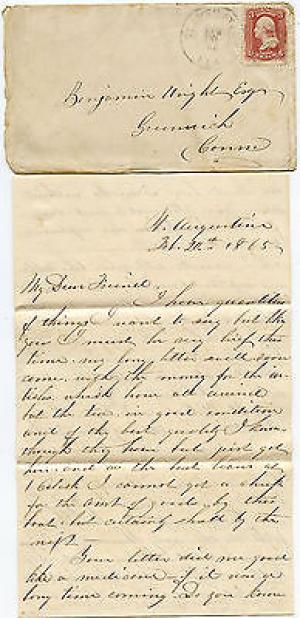 Benjamin Wright Esq
Greenwich
Conn
St. Augustine
Feb. 20th 1865
My Dear Friend.
I have quantities
of things I want to say but like
you I must be very brief this
time. my long letter will soon
come, with the money for the
which have all arrived
but the tea. in good condition
and of the best quality I know
though they have but just got
here. and as the boat leaves at
I cannot get a check
for the amt of goods by this
boat. but certainly shall by the
next—
Your letter did me good
like a medicine, if it was a
long time coming. Do you know